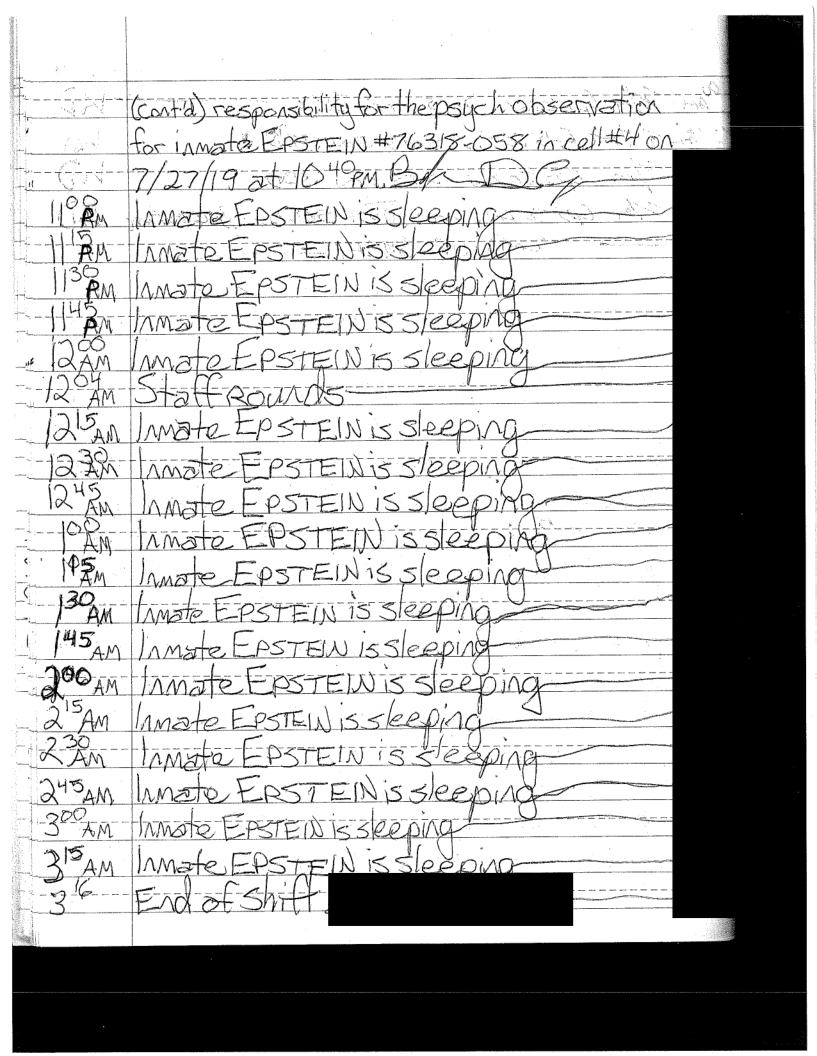 (cont'd) responsibility for the psych observation
for inmate EPSTEIN #76318-058 in cell #4 on
7/27/19 at 10 40 PM.
11 00 PM Inmate EPSTEIN is sleeping
11 15 PM Inmate EPSTEIN is sleeping
11 30 PM Inmate EPSTEIN is sleeping
11 45 PM Inmate EPSTEIN is sleeping
12 00 AM Inmate EPSTEIN is sleeping
12 04 AM Staff Rounds
12 15 AM Inmate EPSTEIN is sleeping
12 30 AM Inmate EPSTEIN is sleeping
12 45 AM Inmate EPSTEIN is sleeping
1 00 AM Inmate EPSTEIN is sleeping
1 15 AM Inmate EPSTEIN is sleeping
1 30 AM Inmate EPSTEIN is sleeping
1 45 AM Inmate EPSTEIN is sleeping
2 00 AM Inmate EPSTEIN is sleeping
2 15 AM Inmate EPSTEIN is sleeping
2 30 AM Inmate EPSTEIN is sleeping
2 45 AM Inmate EPSTEIN is sleeping
3 00 AM Inmate EPSTEIN is sleeping
3 15 AM Inmate EPSTEIN is sleeping
3 16 End of Shift